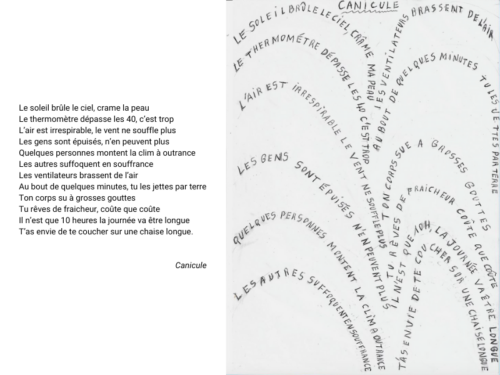 Le soleil brûle le ciel, crame la peau
Le thermomètre dépasse les 40, c'est trop
L'air est irrespirable, le vent ne souffle plus
Les gens sont épuisés, n'en peuvent plus
Quelques personnes montent la clim à outrance
Les autres suffoquent en souffrance
Les ventilateurs brassent de l'air
Au bout de quelques minutes, tu les jettes par terre
Ton corps su à grosses gouttes
Tu rêves de fraicheur, coûte que coûte
Il n'est que 10 heures la journée va être longue
T'as envie de te coucher sur une chaise longue.
Canicule
CANICULE
LE SOLEIL BRÛLE LE CIEL, CRÂME MA PEAU
LE THERMOMÉTRE DÉPASSE LES 40 C'EST TROP
L'AIR EST IRRESPIRABLE LE VENT NE SOUFFLE PLUS
LES GENS SONT ÉPUISÉS N'EN PEUVENT PLUS
QUELQUES PERSONNES MONTENT LA CLIM À OUTRANCE
LES AUTRES SUFFOQUENT EN SOUFFRANCE
LES VENTILATEURS BRASSENT DE L'AIR
AU BOUT DE QUELQUES MINUTES TU LES JETTES PAR TERRE
TON CORPS SUE A GROSSES GOUTTES
TU RÊVES DE FRAICHEUR COÛTE QUE COÛTE
IL N'EST QUE 10H, LA JOURNÉE VA ÊTRE LONGUE
T'AS ENVIE DE TE COUCHER SUR UNE CHAISE LONGUE